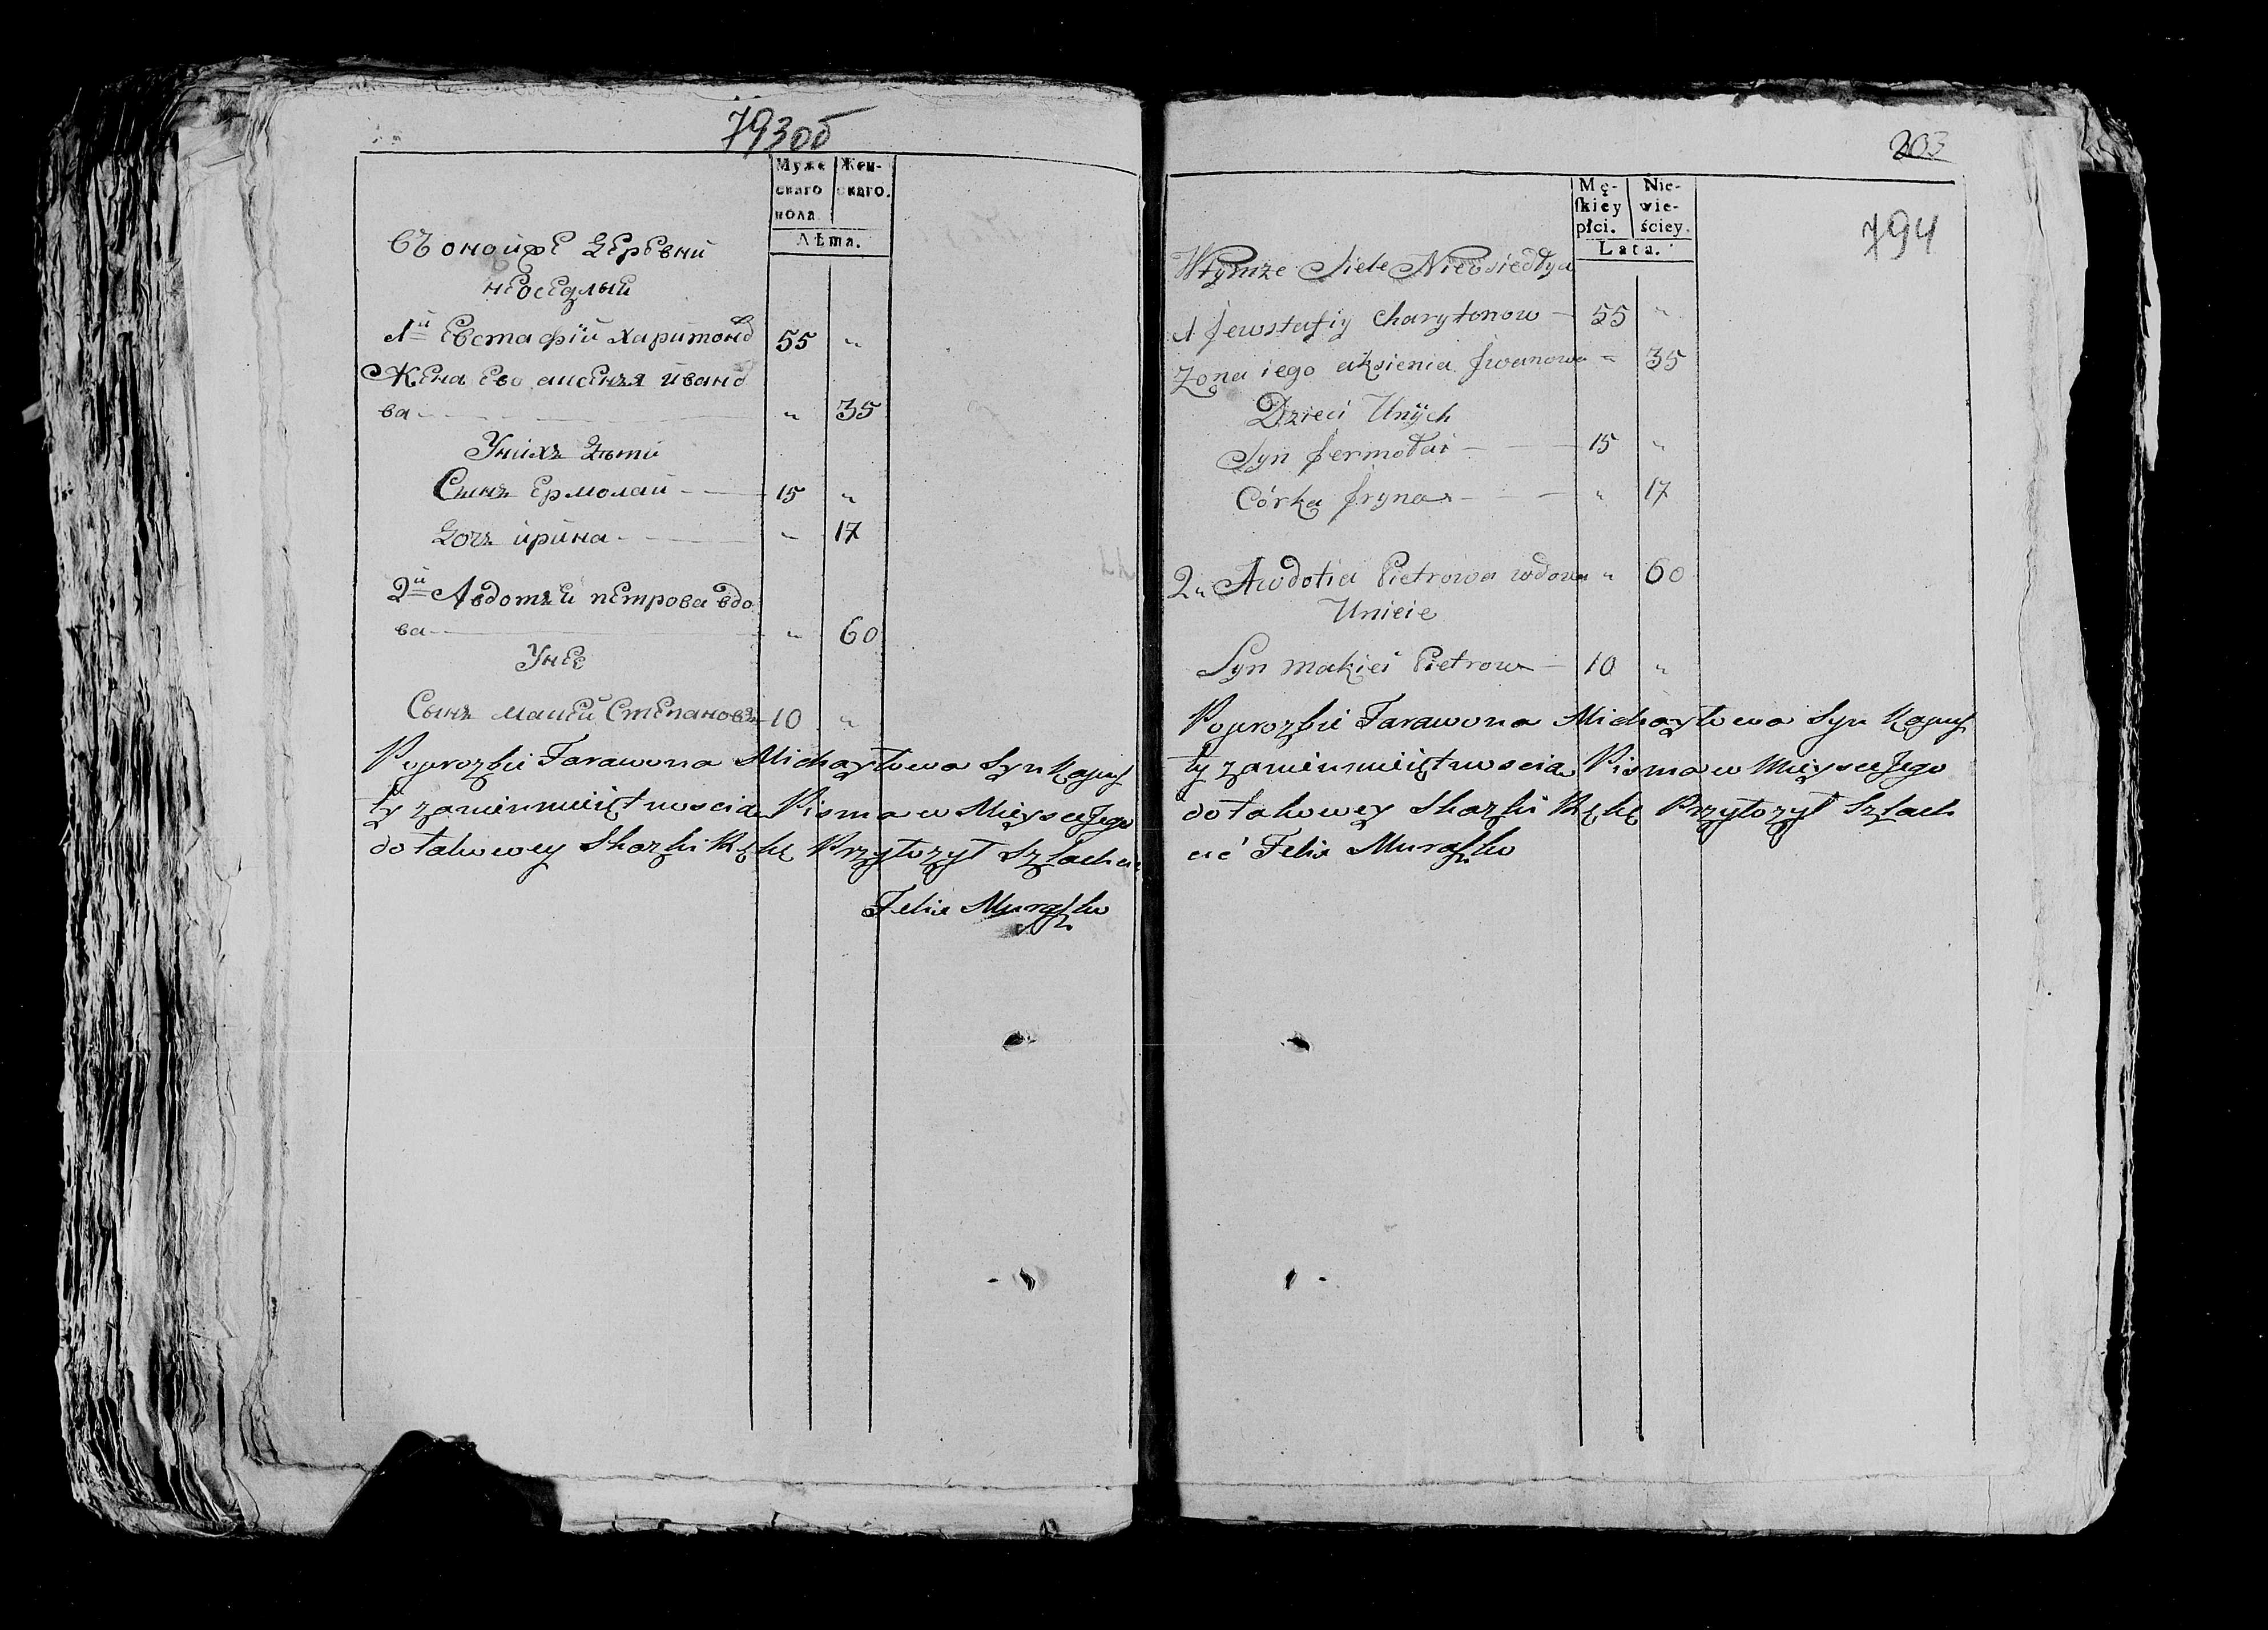 793об
Муже Жен-
скаго скаго.
пола
Лѣта.
Съ онойже деревни
неоседлый
1й Евстафiй харитоно 55 "
Жена Ево аксенъя ивано
ва " 35
Унихъ дѣти
Сынъ Ермолай 15 "
дочъ ирина " 17
2й Авдотъей петрова вдо
ва " 60
Унее
Сынъ макей Степановъ 10 "
Poprozbie Farawona Michayłowa Syn Kapus
ty zanieumieiętnoscia Pisma w Mieyscu Jego
do takowey Skazki Rękę Przyłozył Szlachcic
Felix Muraszko
203
794
Mę- Nie-
skiey wie-
płci. ściey.
Lata.
Wtymże Siele Nieosiedłya
1 Jewstafiy Charytonow 55 "
Zona iego aksienia Jwanowa " 35
Dzieci Unijch
Syn Jermołai 15 "
Córka Jryna " 17
2" Awdotia Pietrowa wdowa " 60
Unieie
Syn makiei Pietrow 10 "
Poprozbie Farawona Michayłowa Syn Kapus
ty zanieumieiętnoscia Pisma w Mieyscu Jego
do takowey Skazki Rękę Przyłozył Szlach
cić Felix Muraszko